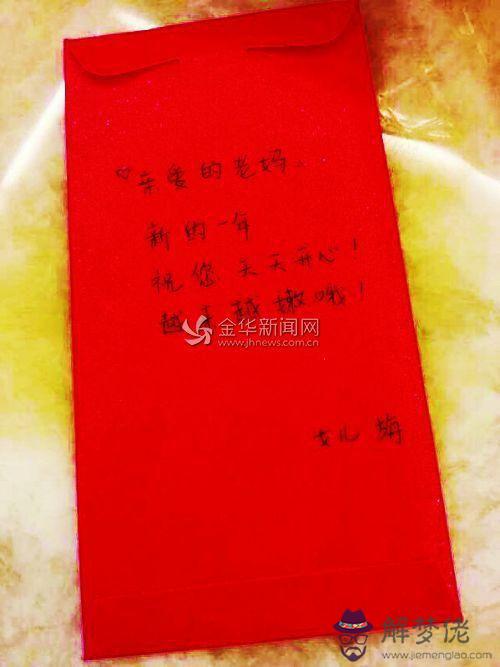 ♡亲爱的老妈...
新的一年
祝您天天开心！
越 越嫩哦！
金华新闻网
www.jhnews.com.cn
女儿 梅
解梦佬
www.jiemenglao.com